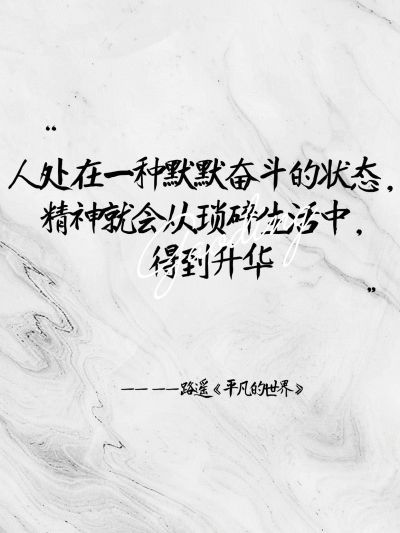 “
人处在一种默默奋斗的状态，
精神就会从琐碎生活中，
得到升华
”
—— ——路遥《平凡的世界》